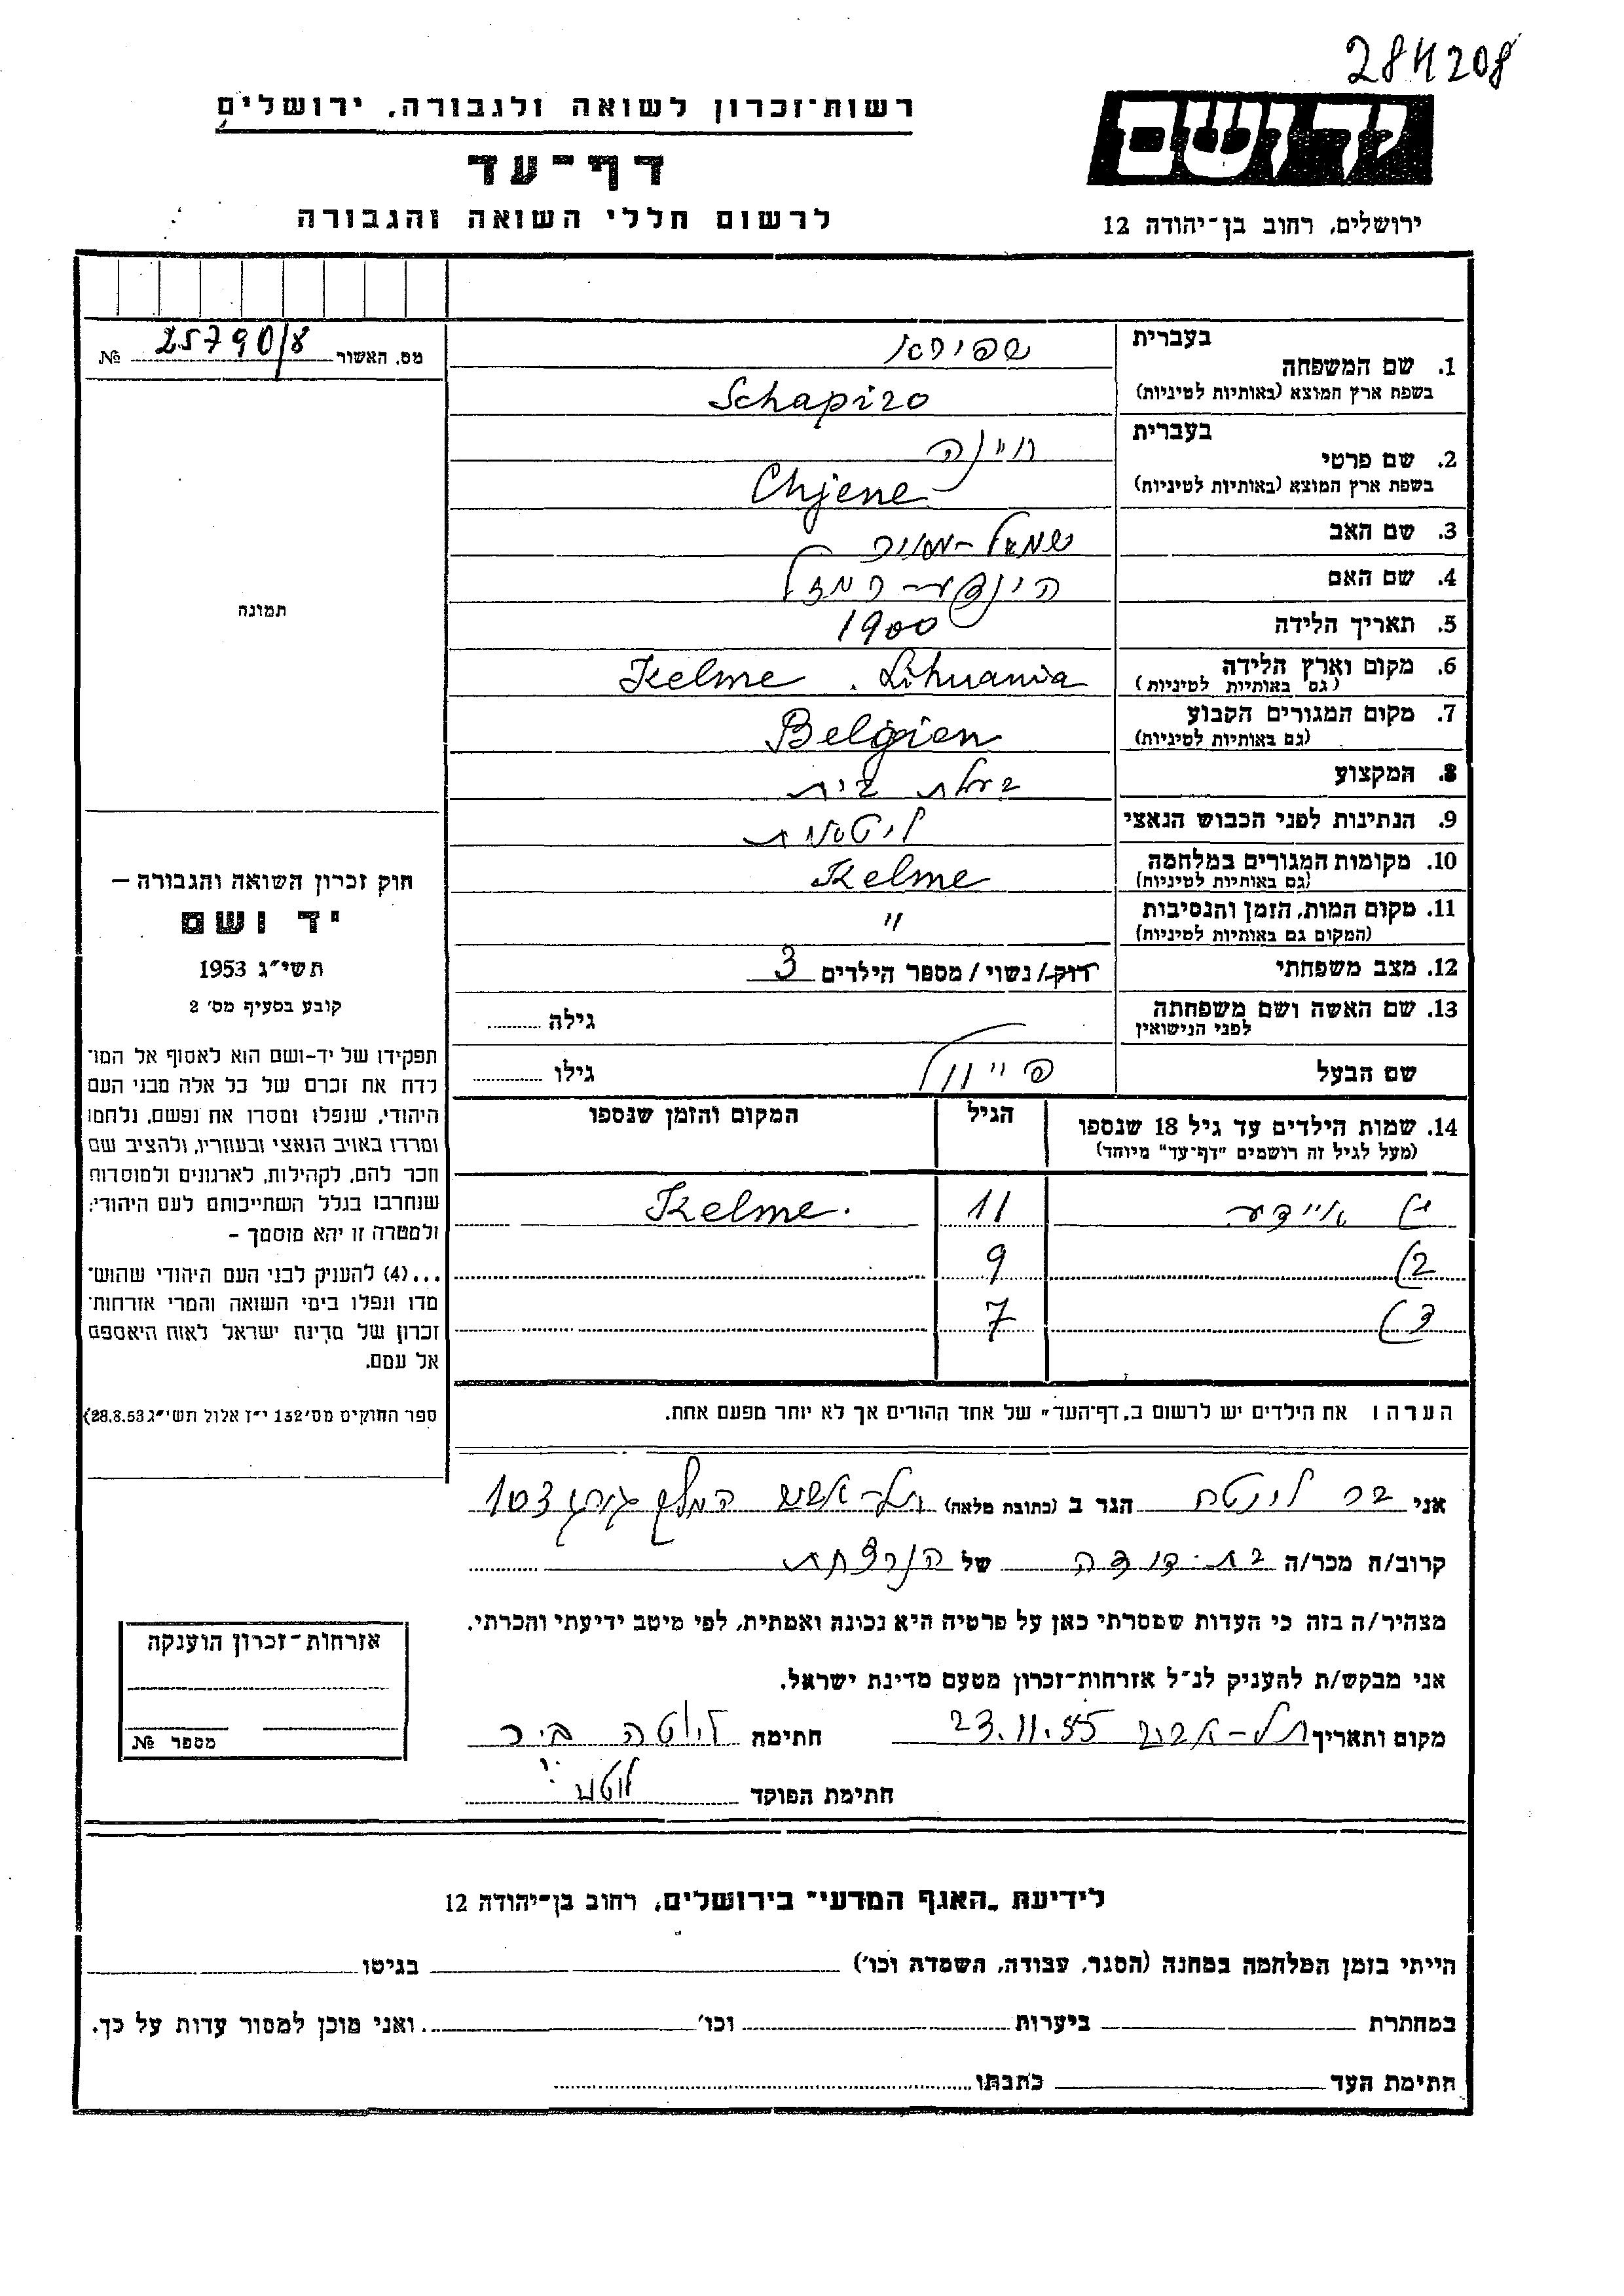 284208
רשות־זכרון לשואה ולגבורה, ירושלים
יד ושם
דף־עד
לרשום חללי השואה והגבורה
ירושלים, רחוב בן־יהודה 12
מס. האשור 25790/8 №
בעברית
1. שם המשפחה שפירא
בשפת ארץ המוצא (באותיות לטיניות) Schapiro
בעברית
2. שם פרטי חיינה
בשפת ארץ המוצא (באותיות לטיניות) Chjene
3. שם האב שמואל-מאיר
4. שם האם
5. תאריך הלידה 1900
6. מקום וארץ הלידה Kelme. Lihuania
(גם באותיות לטיניות)
7. מקום המגורים הקבוע Belgien
(גם באותיות לטיניות)
8. המקצוע בעלת בית
9. הנתינות לפני הכבוש הנאצי ליטאית
10. מקומות המגורים במלחמה Kelme
(גם באותיות לטיניות)
11. מקום המות, הזמן והנסיבות "
(המקום גם באותיות לטיניות)
12. מצב משפחתי רווק/נשוי/מספר הילדים 3
13. שם האשה ושם משפחתה גילה
לפני הנישואין
שם הבעל גילו
14. שמות הילדים עד גיל 18 שנספו הגיל המקום והזמן שנספו
(מעל לגיל זה רושמים "דף־עד" מיוחד)
1) איידע 11 Kelme.
2) 9
3) 7
הערה: את הילדים יש לרשום ב„דף־העד" של אחד ההורים אך לא יותר מפעם אחת.
תמונה
חוק זכרון השואה והגבורה —
יד ושם
תשי"ג 1953
קובע בסעיף מס' 2
תפקידו של יד-ושם הוא לאסוף אל המו־
לדת את זכרם של כל אלה מבני העם
היהודי, שנפלו ומסרו את נפשם, נלחמו
ומרדו באויב הנאצי ובעוזריו, ולהציב שם
וזכר להם, לקהילות, לארגונים ולמוסדות
שנחרבו בגלל השתייכותם לעם היהודי;
ולמטרה זו יהא מוסמך –
...(4) להעניק לבני העם היהודי שהוש־
מדו ונפלו בימי השואה והמרי אזרחות־
זכרון של מדינת ישראל לאות היאספם
אל עמם.
ספר החוקים מס' 132 י"ז אלול תשי"ג 28.8.53)
אני הגר ב (כתובת מלאה) המלך גורג 103
קרוב/ה מכר/ה בת-דודה של הנרצחת
מצהיר/ה בזה כי העדות שמסרתי כאן על פרטיה היא נכונה ואמתית, לפי מיטב ידיעתי והכרתי.
אני מבקש/ת להעניק לנ"ל אזרחות־זכרון מטעם מדינת ישראל.
מקום ותאריך תל-אביב 23.11.55 חתימה
חתימת הפוקד
אזרחות־זכרון הוענקה
מספר №
לידיעת „האגף המדעי" בירושלים, רחוב בן־יהודה 12
הייתי בזמן המלחמה במחנה (הסגר, עבודה, השמדה וכו') בגיטו
במחתרת ביערות וכו' ואני מוכן למסור עדות על כך.
חתימת העד כתבתו